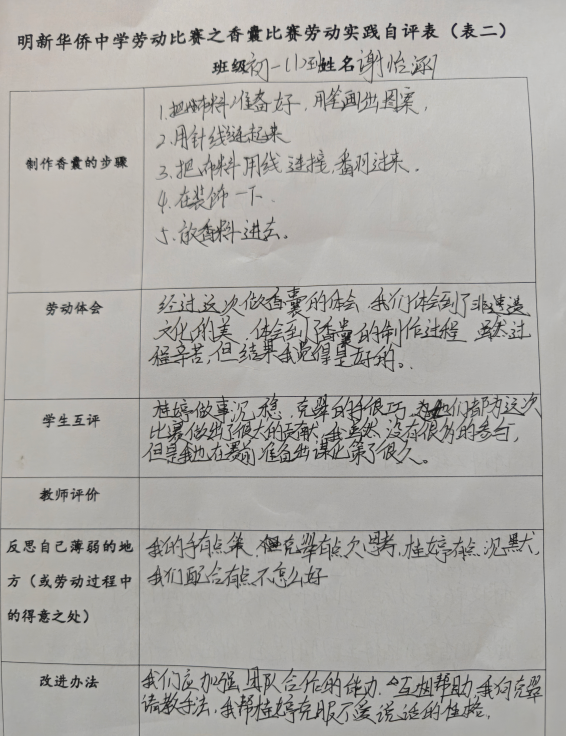 明新华侨中学劳动比赛之香囊比赛劳动实践自评表（表二）
班级初一(1)班姓名谢怡涵
制作香囊的步骤
1.把布料准备好，用笔画出图案，
2.用针线缝起来
3.把布料用线连接，翻过来．
4.在装饰一下
5.放香料进去。
劳动体会
经过这次做香囊的体会，我们体会到了非遗
文化的美，体会到了香囊的制作过程，虽然过
程辛苦，但结果我觉得是好的。
学生互评
桂婷做事沉稳，克翠的手很巧，她们都为这次
比赛做出了很大的贡献，我虽然没有很多的参与，
但是我也在赛前准备出谋化策了很久。
教师评价
反思自己薄弱的地
方（或劳动过程中
的得意之处）
我的手有点笨，克翠有点欠思考，桂婷有点沉默，
我们配合有点不怎么好
改进办法
我们应加强团队合作的能力，互相帮助，我向克翠
请教手法，我帮桂婷克服不爱说话的性格，